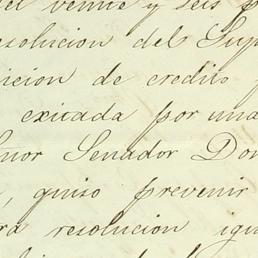 el veinte y seis
esolucion del Sup
icion de credito
exitada por una
ñor Senador Don
, quiso prevenir
ra resolucion igu